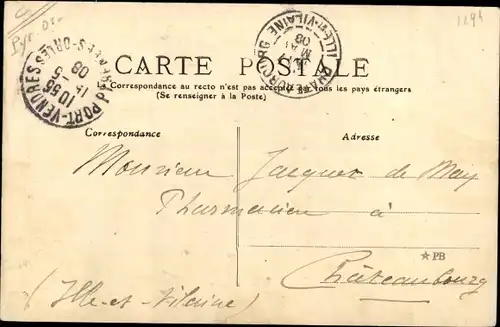 Pyr. Or.
1294
PORT-VENDRES
PYRÉNÉES-ORLES
10 55
14 5
08
CHATEAUBOURG
ILLE-ET-VILAINE
MAI
08
CARTE POSTALE
Correspondance au recto n'est pas acceptée par tous les pays étrangers
(Se renseigner à la Poste)
Correspondance
Adresse
Monsieur Jacques de May
Pharmacien à
★PB
Châteaubourg
(Ille-et-Vilaine)